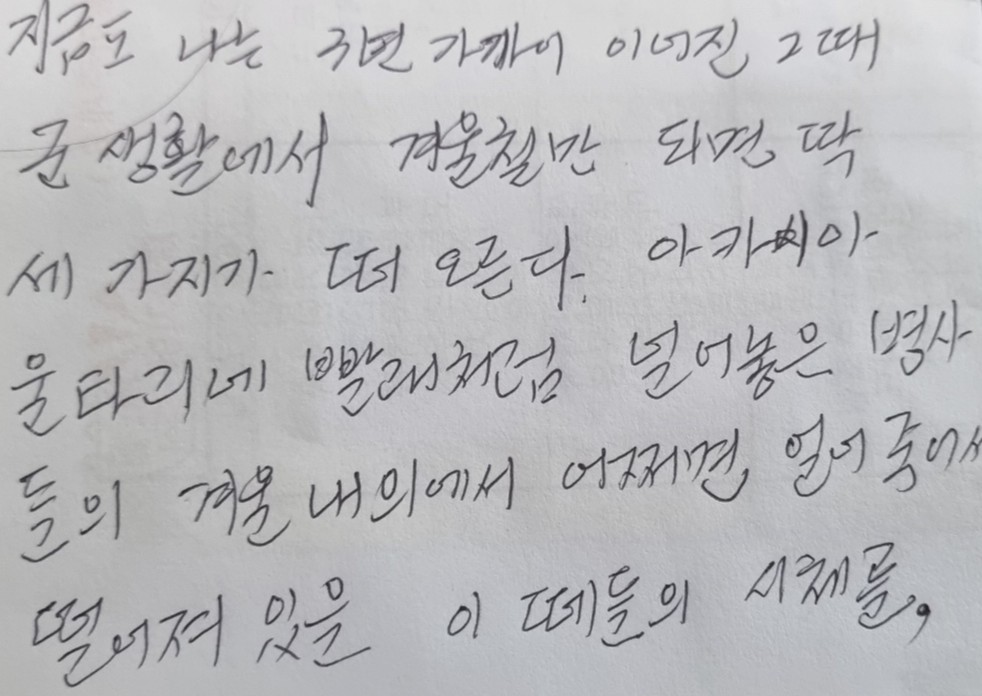 지금도 나는 구년 가까이 이어진 그때
군 생활에서 겨울철만 되면 딱
세 가지가 떠오른다. 아카시아
울타리에 빨래처럼 널어놓은 병사
들의 겨울 내의에서 어쩌면, 얼어 죽어서
떨어져 있을 이 떼들의 시체를,